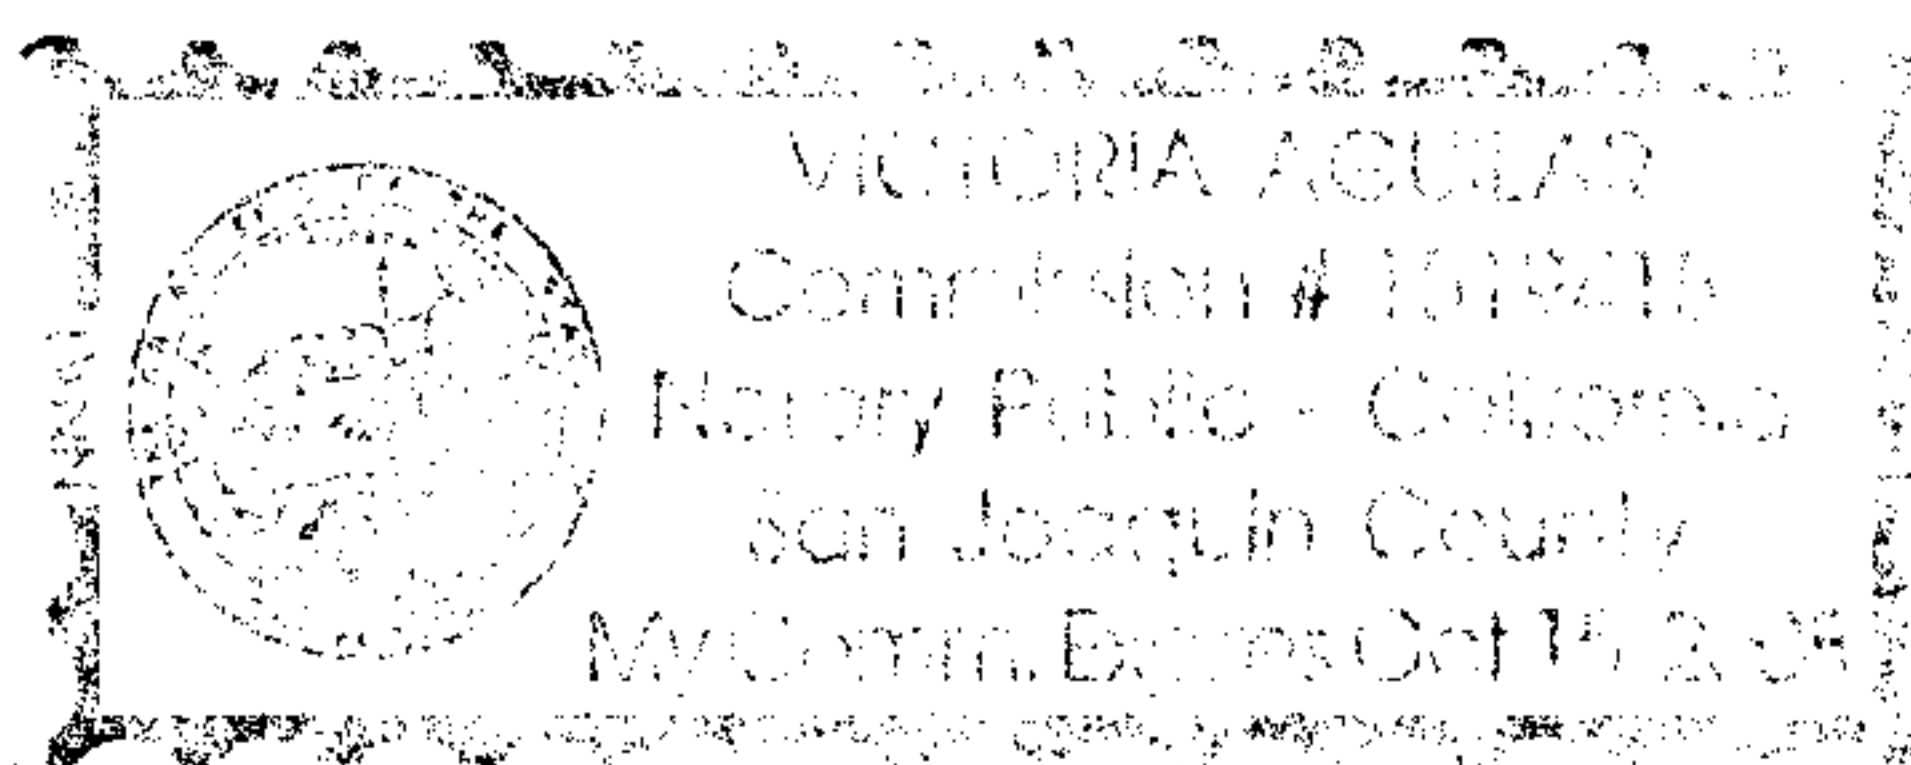 VICTORIA AGUILAR
Commission #
Notary Public - California
San Joaquin County
My Comm. Expires Oct